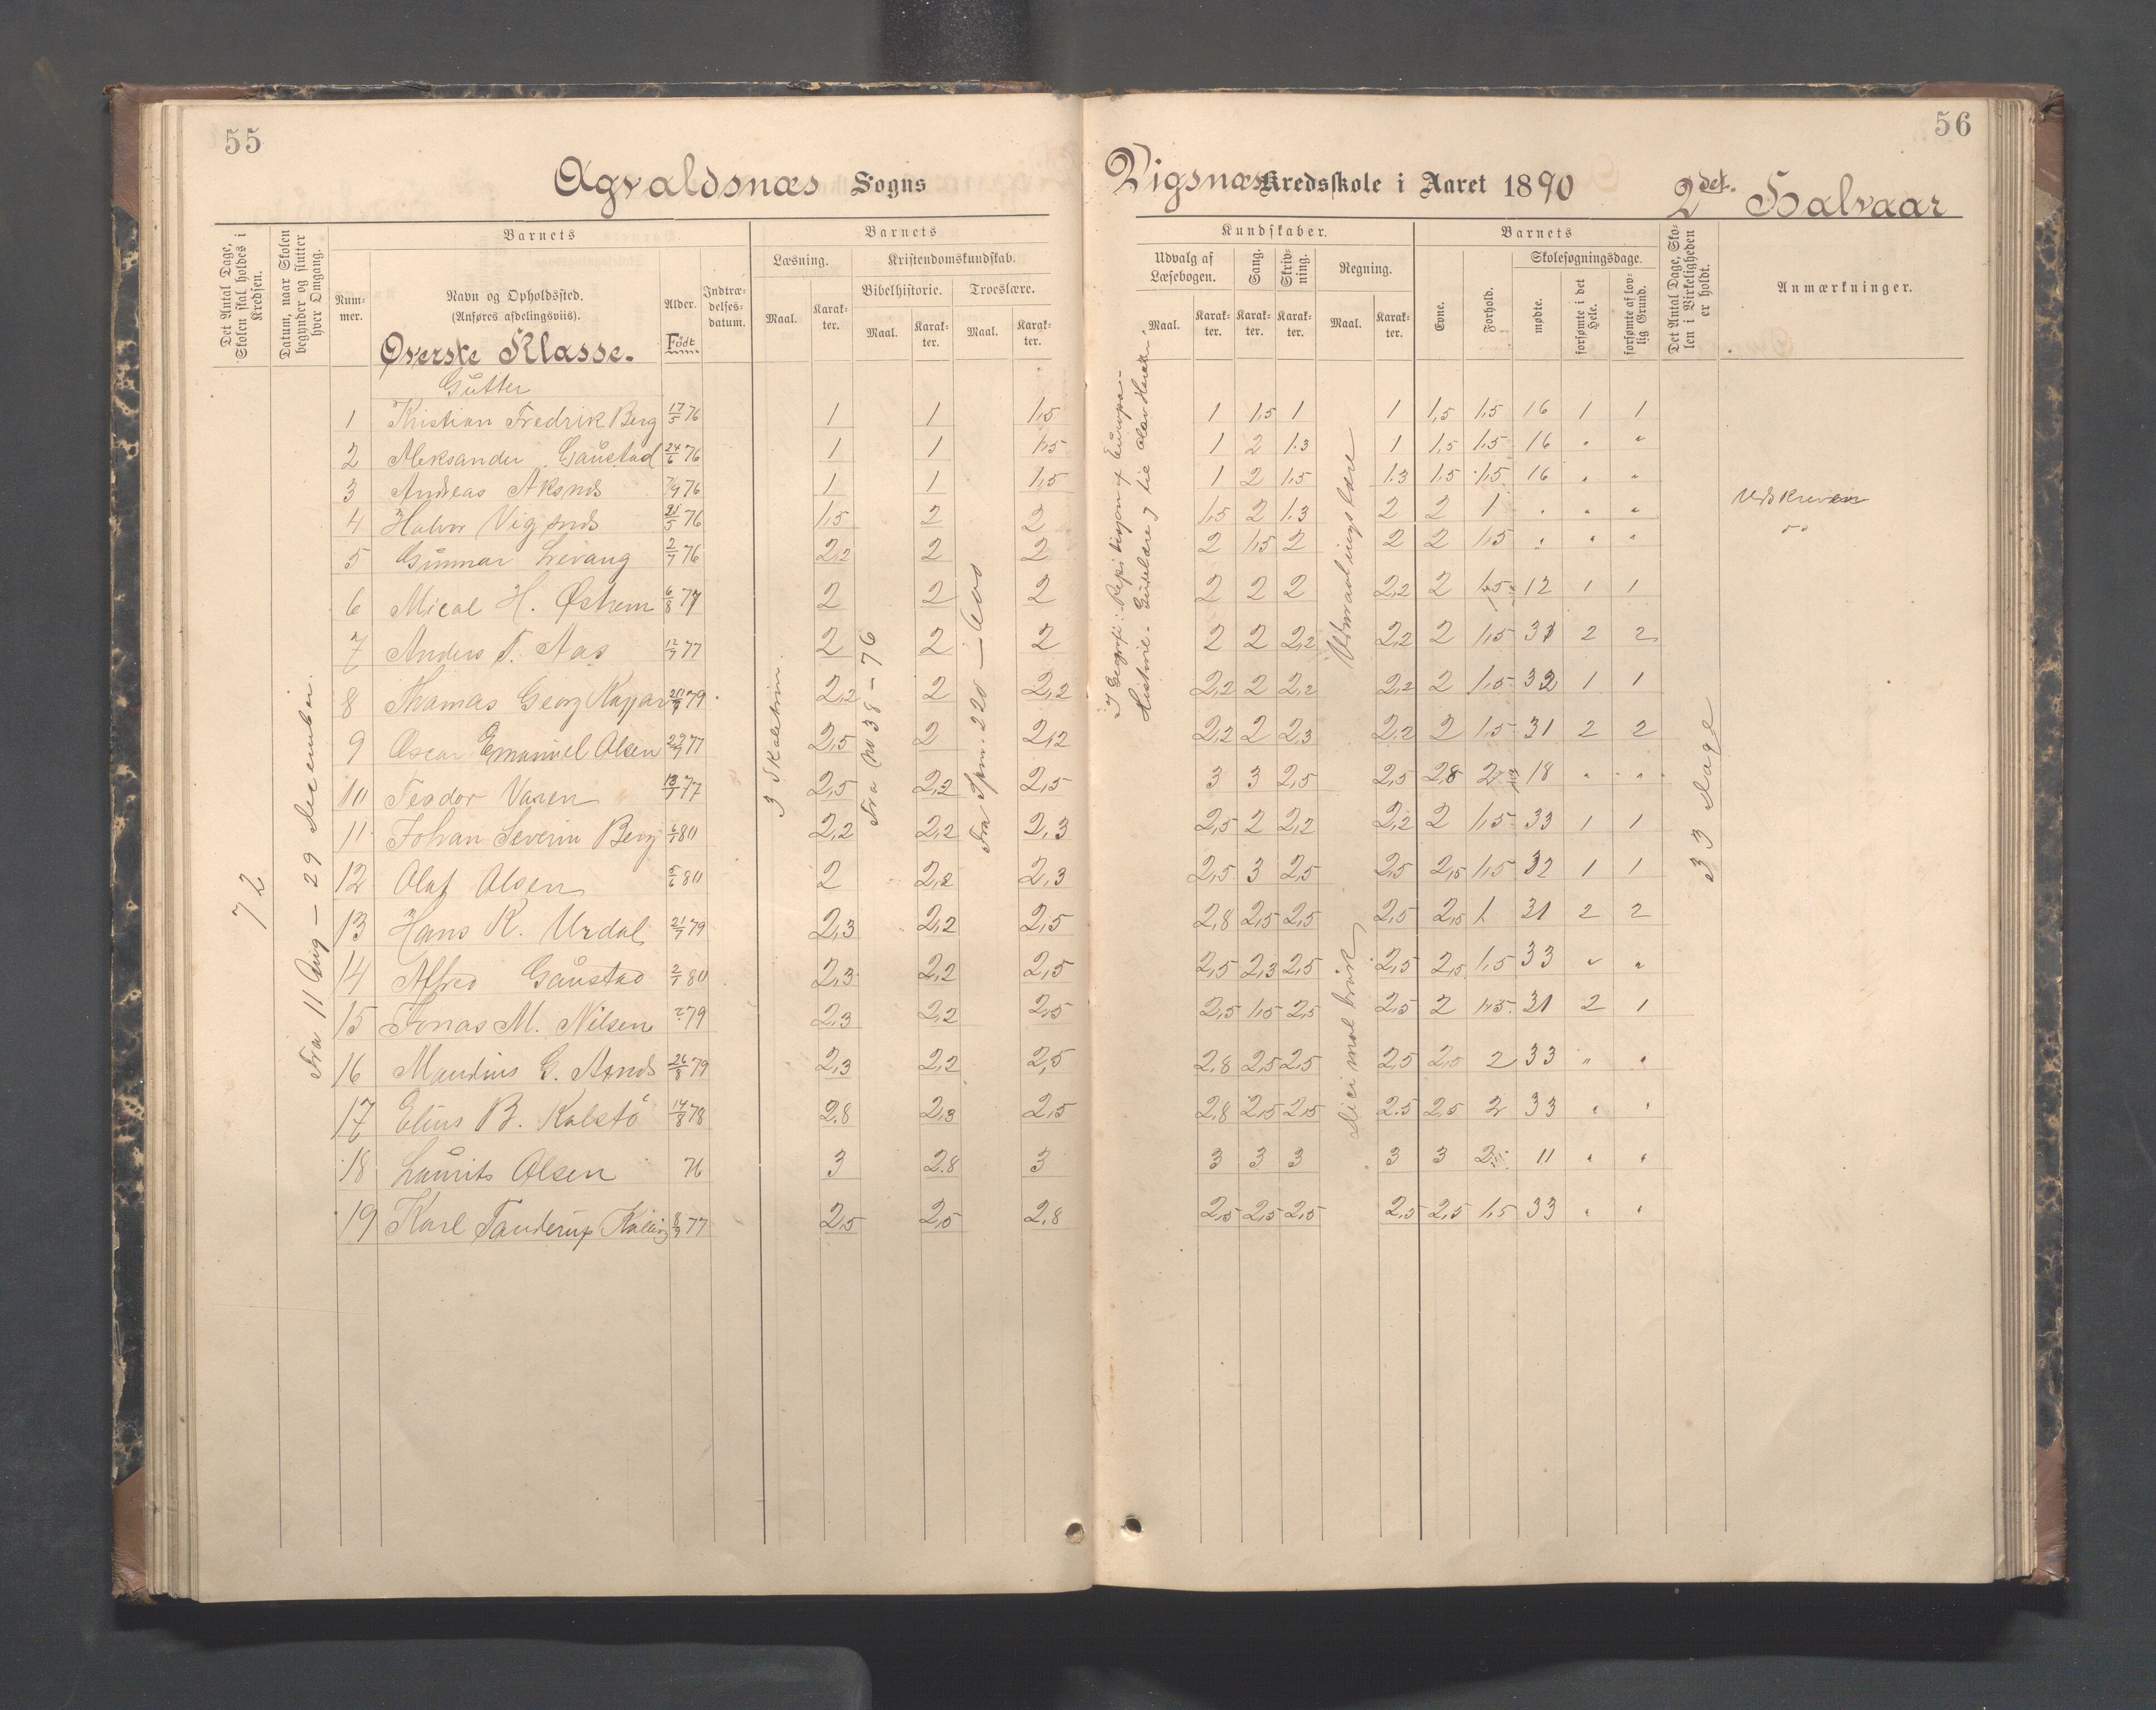 55
56
Agvaldsnæs Sogns
Vigsnæs Kredsskole i Aaret 1890 2det. Halvaar
Det Antal Dage, Skolen skal holdes i Kredsen.
Datum, naar Skolen begynder og slutter hver Omgang.
Barnets
Num-mer.
Navn og Opholdssted.
(Anføres afdelingsviis).
Øverste Klasse.
Alder.
Født
Indtræ-delses-datum.
Barnets
Læsning.
Kristendomskundskab.
Bibelhistorie.
Troeslære.
Maal. Karak-ter. Maal. Karak-ter. Maal. Karak-ter.
Kundskaber.
Udvalg af Læsebogen. Sang. Skriv-ning. Regning.
Maal. Karak-ter. Karak-ter. Karak-ter. Maal. Karak-ter.
Barnets
Evne. Forhold.
Skolesøgningsdage.
mødte. forsømte i det Hele. forsømte af lov-lig Grund.
Det Antal Dage, Sko-len i Virkeligheden er holdt.
Anmærkninger.
72
Fra 11 Aug – 29 December.
3 Skoletrin.
Fra No 38 – 76
Fra Spm. 220 –
Historie
Decimalbrøk
33 Dage
Gutter
1 Kristian Fredrik Berg 17/5 76 1 1 1,5 1 1,5 1 1 1,5 1,5 16 1 1
2 Aleksander Gaustad 24/6 76 1 1 1,5 1 2 1.3 1 1,5 1,5 16 " "
3 Andreas Aksnds 7/9 76 1 1 1,5 1 2 1,5 1.3 1,5 1,5 16 " "
4 Halvor Vigsnds 21/5 76 1,5 2 2 1,5 2 1.3 2 2 1 " " " Udskreven
5 Gunnar Levang 2/7 76 2,2 2 2 2 1,5 2 2 2 1,5 " " " "
6 Mical H. Østrem 6/8 77 2 2 2 2 2 2 2,2 2 1,5 12 1 1
7 Anders T. Aas 12/7 77 2 2 2 2 2 2,2 2,2 2 1,5 31 2 2
8 Thomas Georg 79 2,2 2 2,2 2,2 2 2,2 2,2 2 1,5 32 1 1
9 Oscar Emanuel Olsen 29/7 77 2,5 2 2,2 2,2 2 2,3 2,2 2 1,5 31 2 2
10 Teodor Vasen 13/7 77 2,5 2,2 2,5 3 3 2,5 2,5 2,8 2 18 " "
11 Johan Severin Berg 80 2,2 2,2 2,3 2,5 2 2,2 2,2 2 1,5 33 1 1
12 Olaf Olsen 5/6 80 2 2,2 2,3 2,5 3 2,5 2,5 2,5 1,5 32 1 1
13 Hans K. Urdal 21/7 79 2,3 2,2 2,5 2,8 2,5 2,5 2,5 2,5 1 31 2 2
14 Alfred Gaustad 2/1 80 2,3 2,2 2,5 2,5 2,3 2,5 2,5 2,5 1,5 33 " "
15 Jonas M. Nilsen 79 2,3 2,2 2,5 2,5 1,5 2,5 2,5 2 1,5 31 2 1
16 G. 26/8 79 2,3 2,2 2,5 2,8 2,5 2,5 2,5 2,5 2 33 " "
17 Elius B. Kalstö 14/8 78 2.8 2,3 2,5 2,8 2,5 2,5 2.5 2,5 2 33 " "
18 Laurits Olsen 76 3 2.8 3 3 3 3 3 3 2 11 " "
19 Karl Tanderup 77 2,5 2,5 2,8 2,5 2,5 2,5 2,5 2,5 1,5 33 " "